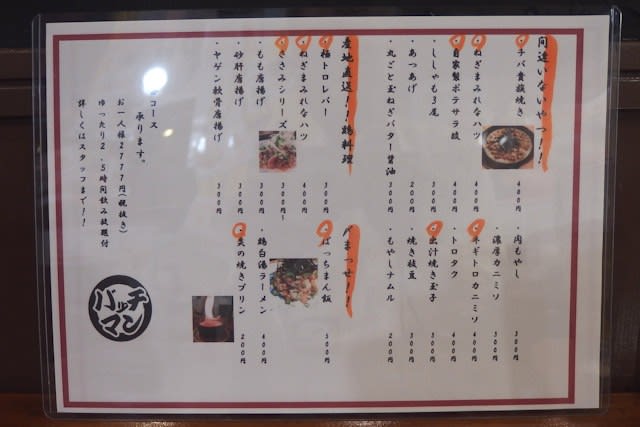 間違いないやつ！！
・チバ貴族焼き 400円
・ねぎまみれなハツ 400円
・自家製ポテサラ 400円
・ししゃも3尾 300円
・あつあげ 200円
・丸ごと玉ねぎバター醤油 300円
肉もやし 300円
・濃厚カニミソ 300円
・ネギトロカニミソ 400円
・トロタク 400円
・出汁焼き玉子 300円
・焼き枝豆 300円
・もやしナムル 200円
産地直送！！鶏料理
・極トロレバー 300円
・ねぎまみれなハツ 400円
・ささみシリーズ 300円〜
・もも唐揚げ 300円
・砂肝唐揚げ 300円
・ヤゲン軟骨唐揚げ 300円
〆まっせ！！
・ばっちまん飯 500円
・鶏白湯ラーメン 400円
・炎の焼きプリン 200円
コース
承ります。
お一人様2777円(税抜き)
ゆったり2.5時間飲み放題付
詳しくはスタッフまで！！
バッチマン